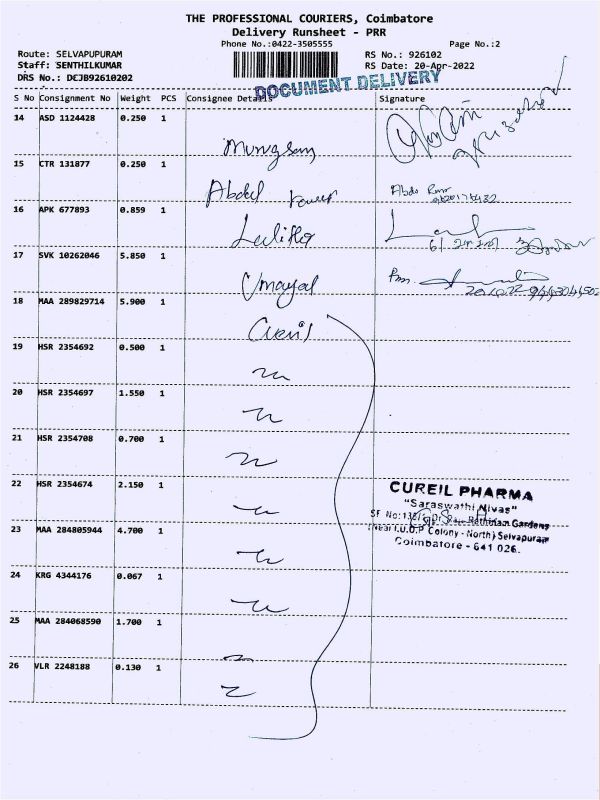 THE PROFESSIONAL COURIERS, Coimbatore
Delivery Runsheet - PRR
Phone No.:0422-3505555 Page No.:2
Route: SELVAPUPURAM RS No.: 926102
Staff: SENTHILKUMAR RS Date: 20-Apr-2022
DRS No.: DCJB92610202
DOCUMENT DELIVERY
S No Consignment No Weight PCS Consignee Details Signature
14 ASD 1124428 0.250 1
15 CTR 131877 0.250 1 Abdul
16 APK 677893 0.859 1
17 SVK 10262046 5.850 1 Umayal
18 MAA 289829714 5.900 1
19 HSR 2354692 0.500 1
20 HSR 2354697 1.550 1
21 HSR 2354708 0.700 1
22 HSR 2354674 2.150 1
23 MAA 284805944 4.700 1
24 KRG 4344176 0.067 1
25 MAA 284068590 1.700 1
26 VLR 2248188 0.130 1
CUREIL PHARMA
"Saraswathi Nivas"
SF No:13 Gardens
Colony - North) Selvapuram
Coimbatore - 641 026.